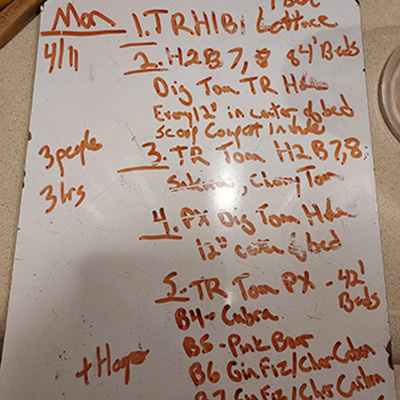 Mon
4/11
1. TRH1B1 Lettuce
2. H2B7,8 84' Beds
Dig Tom TR Holes
Every 12" in center of bed
Scoop Compost in hole
3 people
3 hrs
3. TR Tom H2B7,8,
, Cherry Tom
4. PX Dig Tom Holes
12" center of bed
5. TR Tom PX - 42'
Beds
B4 - Cabra
B5 - Pink Boar
+ Hoops
B6 Gin Fiz/Cher
B7 Gin Fiz/Cher